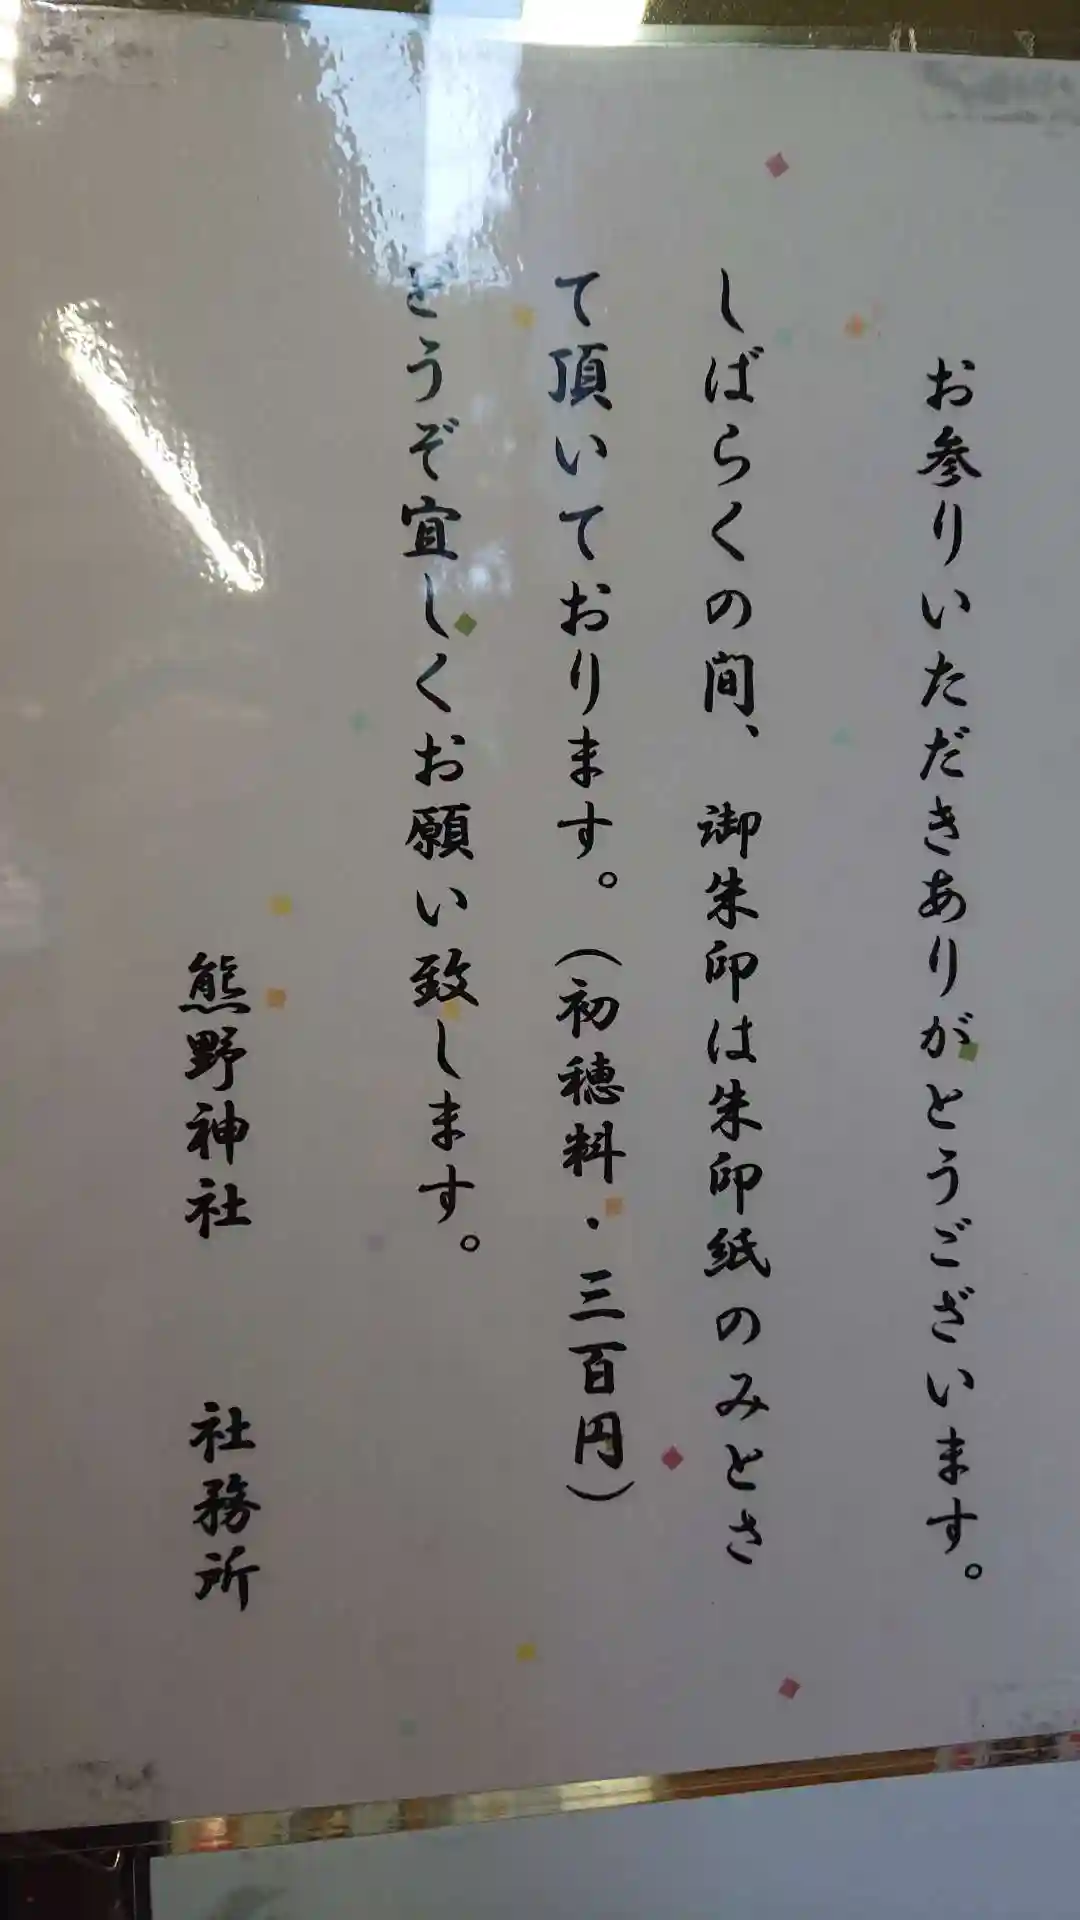 お参りいただきありがとうございます。
しばらくの間、御朱印は朱印紙のみとさ
て頂いております。(初穂料・三百円)
どうぞ宜しくお願い致します。
熊野神社 社務所